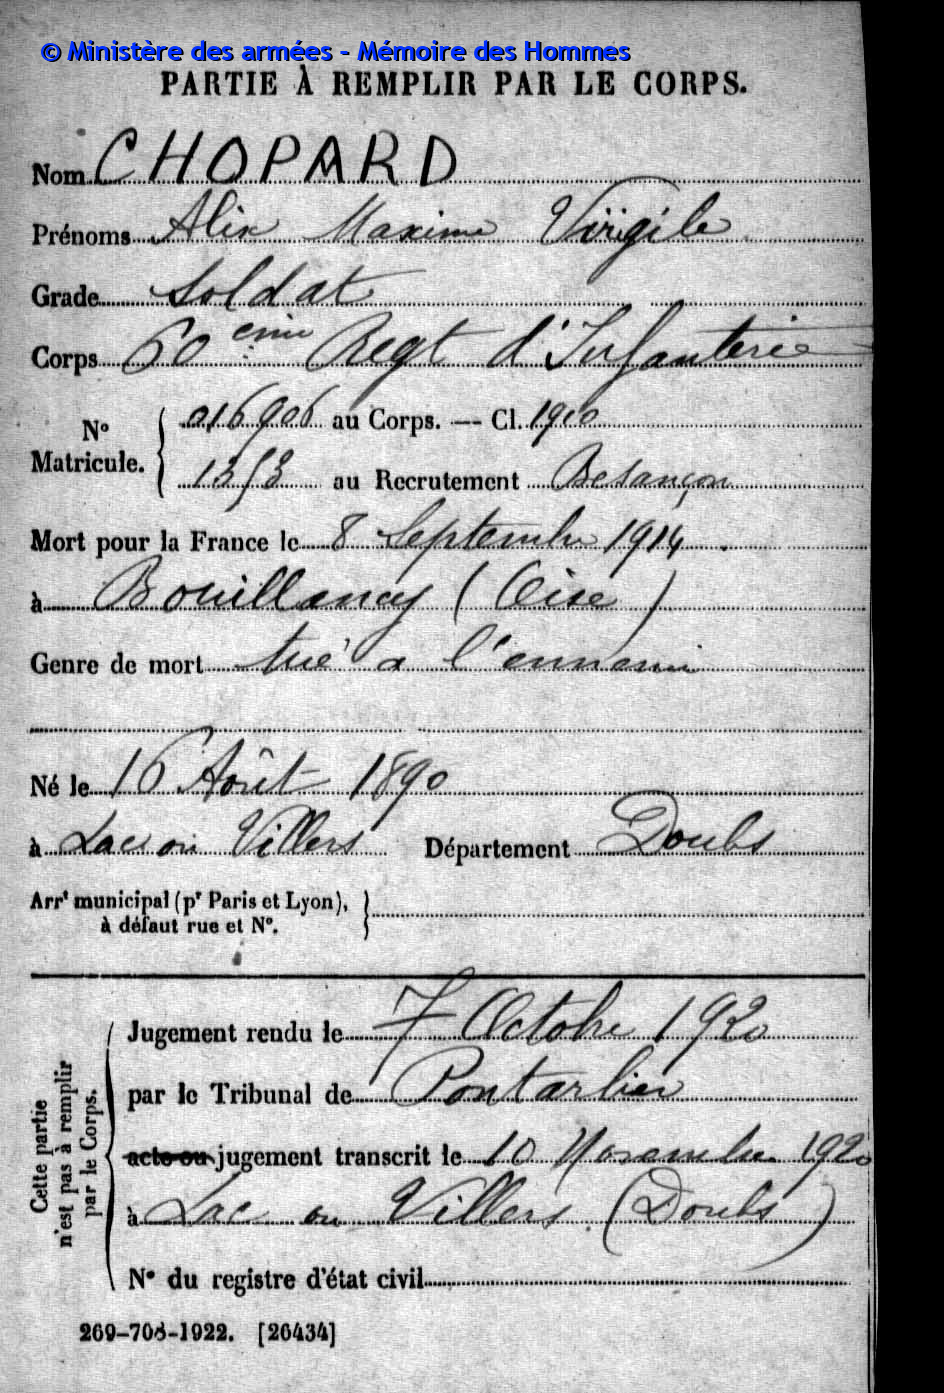 © Ministère des armées - Mémoire des Hommes
PARTIE À REMPLIR PAR LE CORPS.
Nom CHOPARD
Prénoms Alix Maxime Virgile
Grade Soldat
Corps 60eme Regt d'Infanterie
N° Matricule. 016906 au Corps. — Cl. 1910
1353 au Recrutement Besançon
Mort pour la France le 8 Septembre 1914
à Bouillancy (Oise)
Genre de mort tué à l'ennemi
Né le 16 Août 1890
à Lac ou Villers Département Doubs
Arrt municipal (pr Paris et Lyon),
à défaut rue et N°.
Cette partie
n'est pas à remplir
par le Corps.
Jugement rendu le 7 Octobre 1920
par le Tribunal de Pontarlier
acte ou jugement transcrit le 10 Novembre 1920
à Lac ou Villers (Doubs)
N° du registre d'état civil
269-708-1922. [26434]